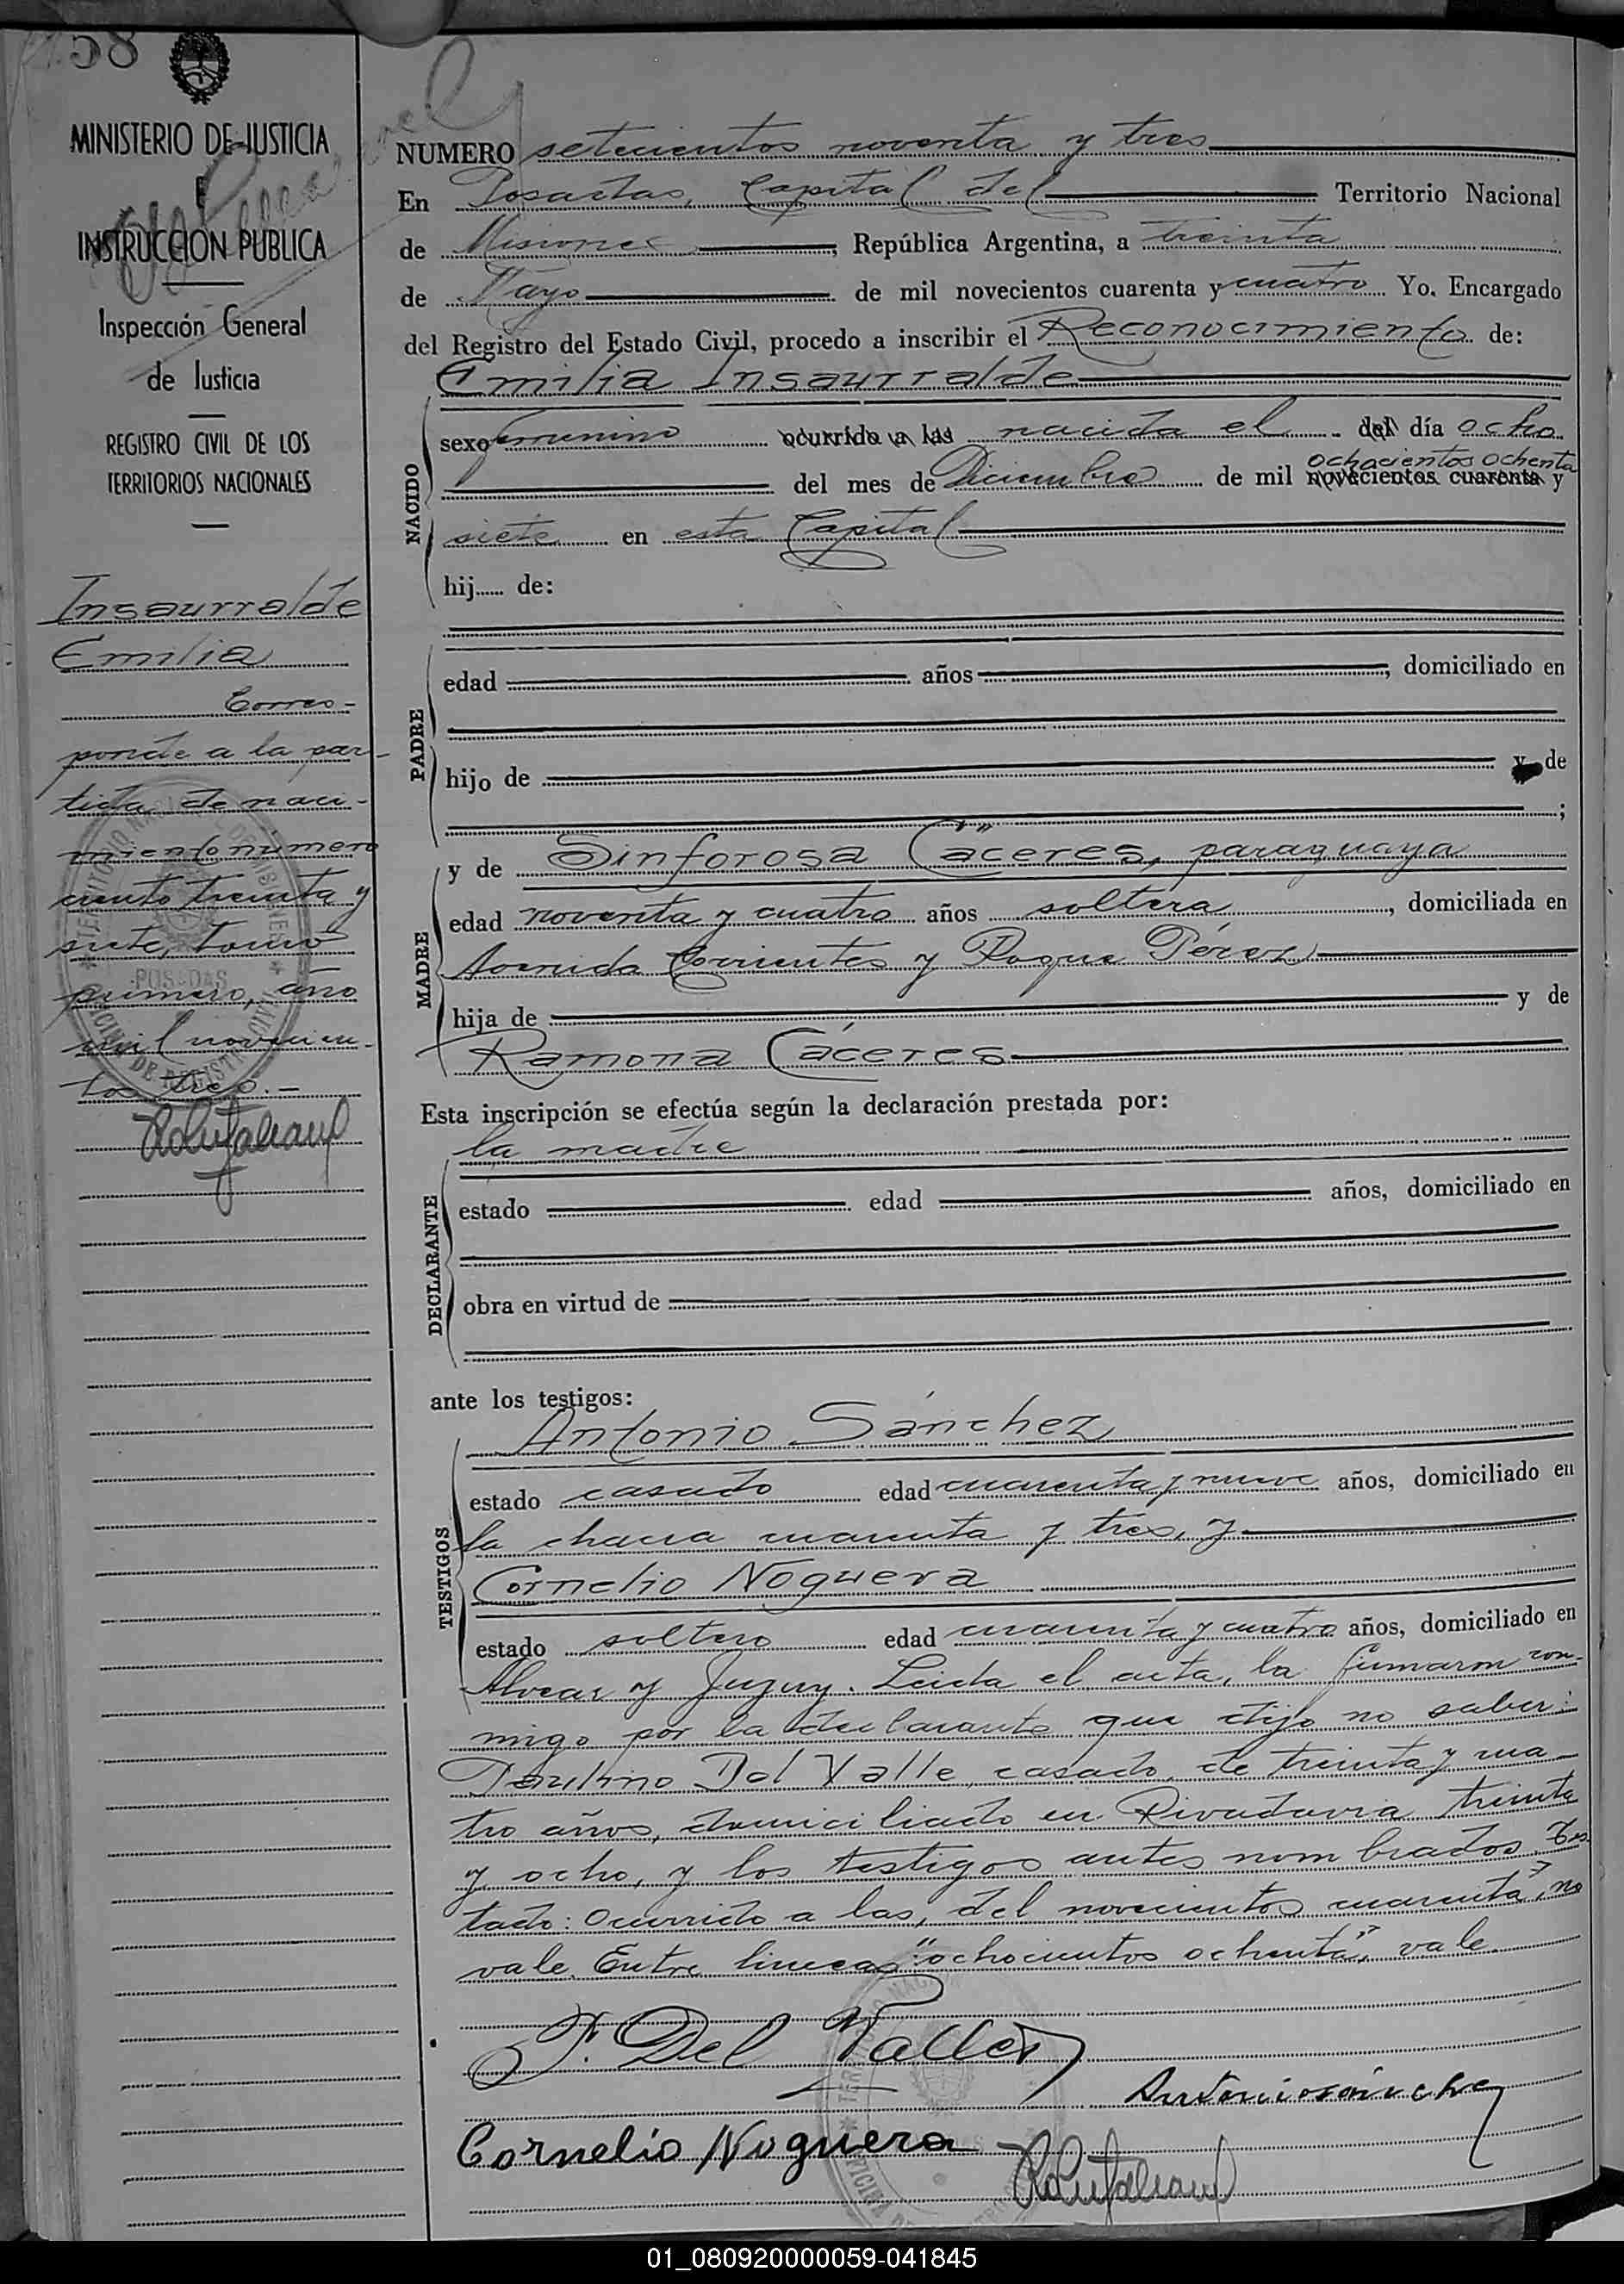 58
MINISTERIO DE JUSTICIA
E
INSTRUCCION PUBLICA
Inspección General
de Justicia
REGISTRO CIVIL DE LOS
TERRITORIOS NACIONALES
Insaurralde
Emilia
Corres-
ponde a la par-
tida de naci-
miento número
ciento treinta y
siete, tomo
primero, año
mil novecien-
tos tres.-
NUMERO setecientos noventa y tres
En Posadas, Capital del Territorio Nacional
de Misiones, República Argentina, a treinta
de Mayo de mil novecientos cuarenta y cuatro Yo, Encargado
del Registro del Estado Civil, procedo a inscribir el Reconocimiento de:
Emilia Insaurralde
NACIDO
sexo femenino ocurrido a las nacida el del día ocho
ochocientos ochenta
del mes de Diciembre de mil novecientos cuarenta y
siete en esta Capital
hij...... de:
PADRE
edad años, domiciliado en
hijo de y de
;
MADRE
y de Sinforosa Cáceres, paraguaya
edad noventa y cuatro años soltera, domiciliada en
Avenida Corrientes y Roque Pérez
hija de y de
Ramona Cáceres
Esta inscripción se efectúa según la declaración prestada por:
la madre
DECLARANTE
estado edad años, domiciliado en
obra en virtud de
ante los testigos:
TESTIGOS
Antonio Sánchez
estado casado edad cuarenta y nueve años, domiciliado en
la chacra cuarenta y tres, y
Cornelio Noguera
estado soltero edad cuarenta y cuatro años, domiciliado en
Alvear y Jujuy. Leida el acta, la firmaron con-
migo por la declarante que dijo no saber:
Paulino Del Valle, casado, de treinta y cua
tro años, domiciliado en Rivadavia treinta
y ocho, y los testigos antes nombrados. Tes
tado: Ocurrido a las, del novecientos cuarenta", no
vale. Entre lineas "ochocientos ochenta", vale
P. Del Valle
Antonio sánchez
Cornelio Noguera
01_080920000059-041845